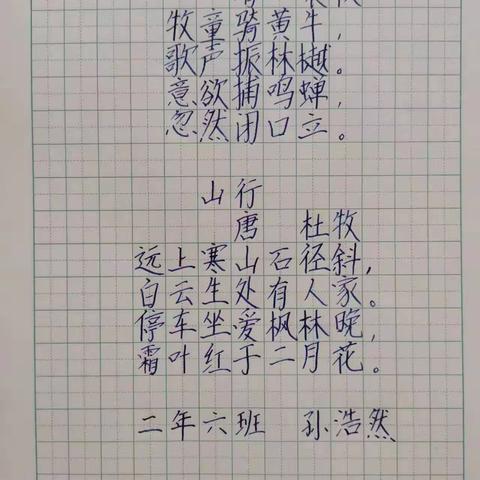 牧童骑黄牛，
歌声振林樾。
意欲捕鸣蝉，
忽然闭口立。
山行
唐 杜牧
远上寒山石径斜，
白云生处有人家。
停车坐爱枫林晚，
霜叶红于二月花。
二年六班 孙浩然